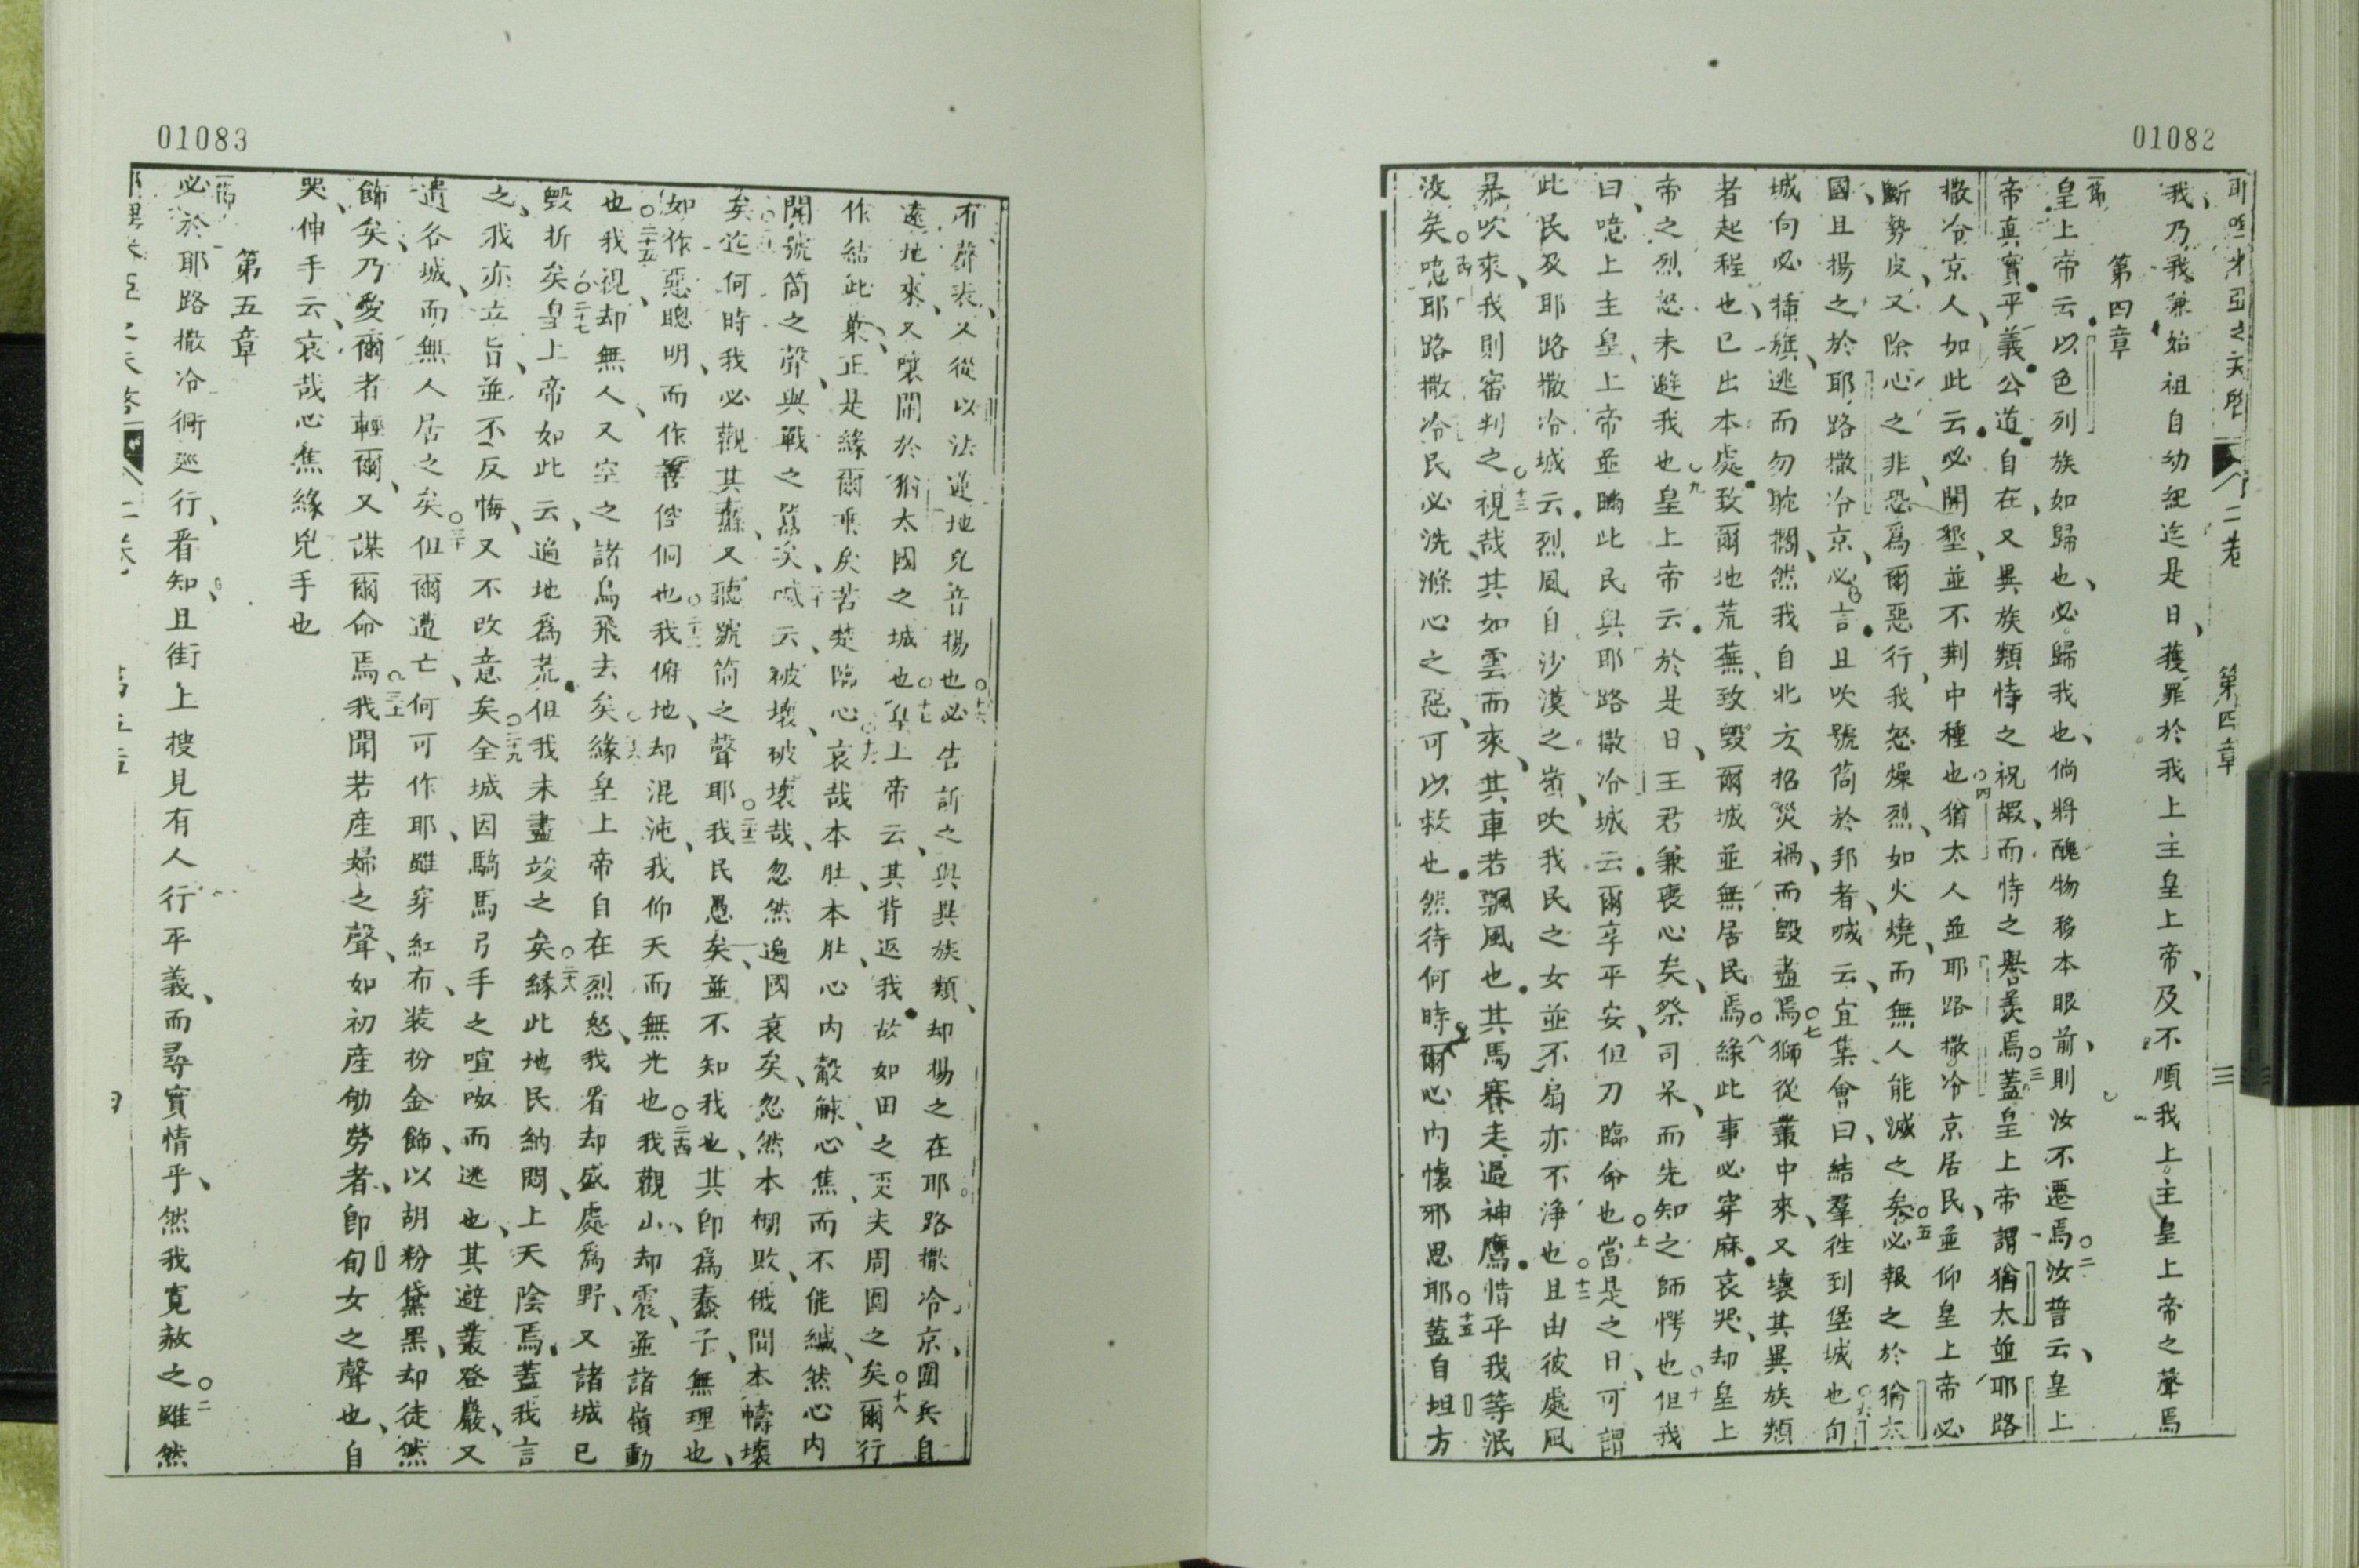 01082
耶哩米亞之天啓
二卷
第四章
三
我乃我兼始祖自幼紀迄是日、獲罪於我上主皇上帝、及不順我上主皇上帝之聲焉
第四章
一節
皇上帝云以色列族如歸也、必歸我也、倘將醜物移本眼前、則汝不遷焉○二汝誓云、皇上
帝真實平義公道自在、又異族類恃之祝嘏、而恃之譽羨焉○三蓋皇上帝謂猶太並耶路
撒冷京人、如此云必開墾並不荆中種也○四猶太人並耶路撒冷京居民、並仰皇上帝必
斷勢皮、又除心之非、恐爲爾惡行、我怒燥烈、如火燒、而無人能滅之矣○五必報之於猶太
國、且揚之於耶路撒冷京、必言且吹號筒於邦者、喊云、宜集會曰、結羣徃到堡城也○六向
城向必揷旗、逃而勿耽擱、然我自北方招災禍、而毀盡焉○七獅從叢中來、又壞其異族類
者起程也、已出本處致爾地荒蕪、致毀爾城並無居民焉○八緣此事必穿麻哀哭、却皇上
帝之烈怒未避我也○九皇上帝云於是日、王君兼喪心矣、祭司呆、而先知之師愕也○十但我
曰、噫上主皇上帝並瞞此民與耶路撒冷城云爾享平安、但刀臨命也○十一當是之日、可謂
此民及耶路撒冷城云烈風自沙漠之嶺、吹我民之女並不扇亦不淨也○十二且由彼處風
暴吹來、我則審判之○十三視哉、其如雲而來、其車若飄風也其馬賽走過神鷹惜乎我等泯
没矣○十四噫耶路撒冷民必洗滌心之惡、可以救也然待何時爾心内懷邪思耶○十五蓋自坦方
01083
有聲表、又從以法蓮地兇音揚也○十六必告訴之、與異族類、却揚之在耶路撒冷京、圍兵自
遠地來、又嚷鬧於猶太國之城也○十七皇上帝云、其背返我故如田之耎夫周圍之矣○十八爾行
作結此菓、正是緣爾事矣苦楚臨心、哀哉本肚、本肚、心内觳觫、心焦、而不能緘、然心内
聞號筒之聲、與戰之嚣矣、喊云、被壞、破壞哉、忽然遍國衰矣、忽然本棚敗、俄間本幬壞
矣、迄何時我必觀其纛、又聽號筒之聲耶○二十二我民愚矣、並不知我也、其卽爲蠢子、無理也、
如作惡聰明、而作善倥侗也○二十三我俯地、却混沌、我仰天而無光也○二十四我觀山、却震、並諸嶺動
也○二十五我視、却無人、又空之諸鳥飛去矣緣皇上帝自在烈怒、我看却盛處爲野、又諸城已
毀折矣○二十七皇上帝如此云、遍地爲荒但我未盡竣之矣○二十八緣此地民納悶、上天陰焉、蓋我言
之、我亦立旨、並不反悔、又不改意矣○二十九全城因騎馬弓手之喧呶而逃也、其避叢登巖、又
遺各城、而無人居之矣○三十但爾遭亡、何可作耶、雖穿紅布、装扮金飾、以胡粉黛黑、却徒然
飾矣、乃愛爾者輕爾、又謀爾命焉○三十一我聞若產婦之聲、如初產劬勞者、卽旬女之聲也、自
哭、伸手云、哀哉心焦緣兇手也
第五章
一節
必於耶路撒冷衕廵行、看知、且街上搜見有人行平義、而尋實情乎、然我寬赦之○二雖然
二卷
第五章
四